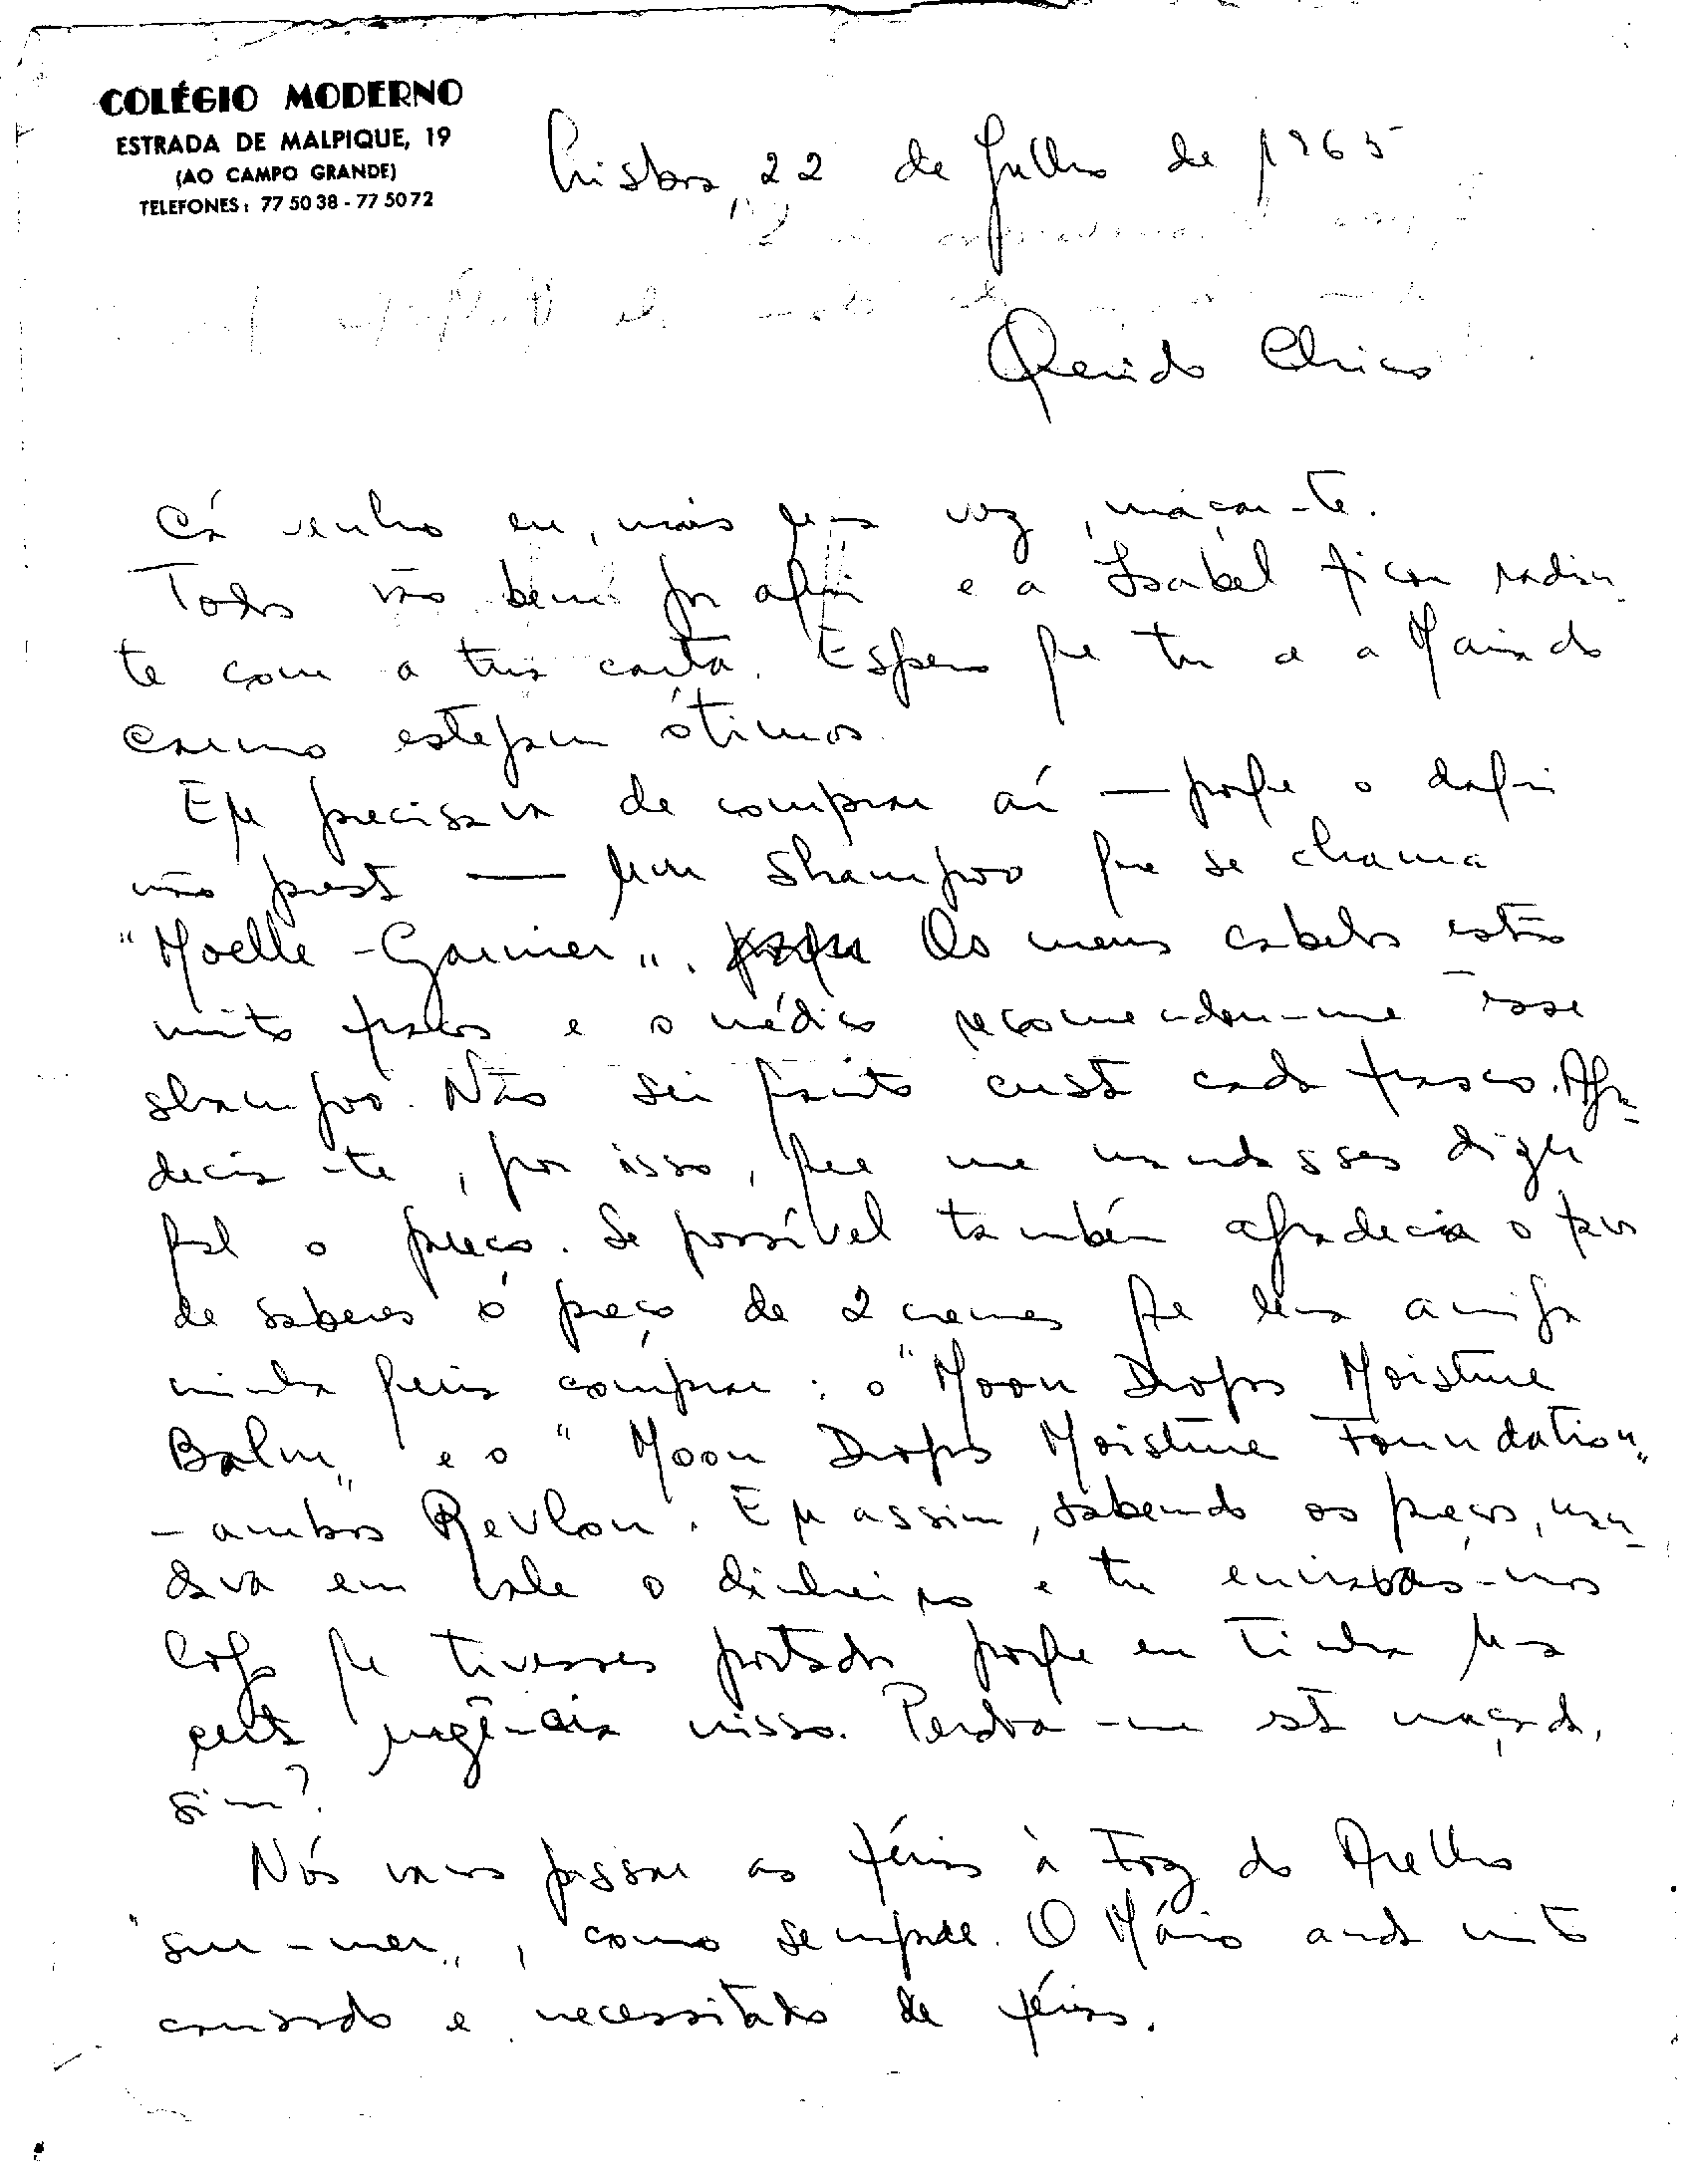 COLÉGIO MODERNO
ESTRADA DE MALPIQUE, 19
(AO CAMPO GRANDE)
TELEFONES: 77 50 38 - 77 50 72
Lisboa, 22 de Julho de 1965
Querido Chico
Cá venho eu, mais uma vez, maçar-te.
Todos vão bem por aqui e a Isabel ficou radian-
te com a tua carta. Espero que tu e a Maria do
Carmo estejam ótimos.
Eu precisava de comprar aí — porque o daqui
não presta — um shampoo que se chama
"Moelle-Garnier". Os meus cabelos estão
muito fracos e o médico recomendou-me esse
shampoo. Não sei quanto custa cada frasco. Agra-
decia-te, por isso, que me mandasses dizer
qual o preço. Se possível também agradecia o favor
de saberes o preço de 2 cremes que uma amiga
minha queria comprar: o "Moon Drops Moisture
Balm" e o "Moon Drops Moisture Foundation"
- ambos Revlon. E assim, sabendo os preços, man-
dava em vale o dinheiro e tu enviavas-nos
logo que tivesses portador porque eu tinha uma
certa urgência nisso. Perdoa-me esta maçada,
sim?
Nós vamos passar as férias à Foz do Arelho
"sur-mer", como sempre. O Mário anda muito
cansado e necessitado de férias.